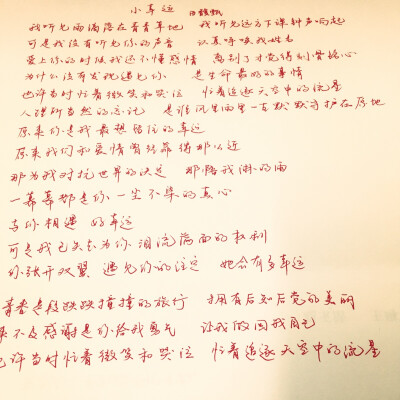 小幸运 田馥甄
我听见雨滴落在青青草地 我听见远方下课钟声响起
可是我没有听见你的声音 认真呼唤我姓名
爱上你的时候我还不懂感情 离别了才觉得刻骨铭心
为什么没有发现遇见你 是生命最好的事情
也许当时忙着微笑和哭泣 忙着追逐天空中的流星
人理所当然的忘记 是谁风里雨里一直默默守护在原地
原来你是我最想留住的幸运
原来我们和爱情曾经靠得那么近
那为我对抗世界的决定 那陪我淋的雨
一幕幕都是你 一尘不染的真心
与你相遇 好幸运
可是我已失去为你泪流满面的权利
你张开双翼 遇见你的注定 她会有多幸运
青春是段跌跌撞撞的旅行 拥有后知后觉的美丽
来不及感谢是你给我勇气 让我做回我自己
也许当时忙着微笑和哭泣 忙着追逐天空中的流星